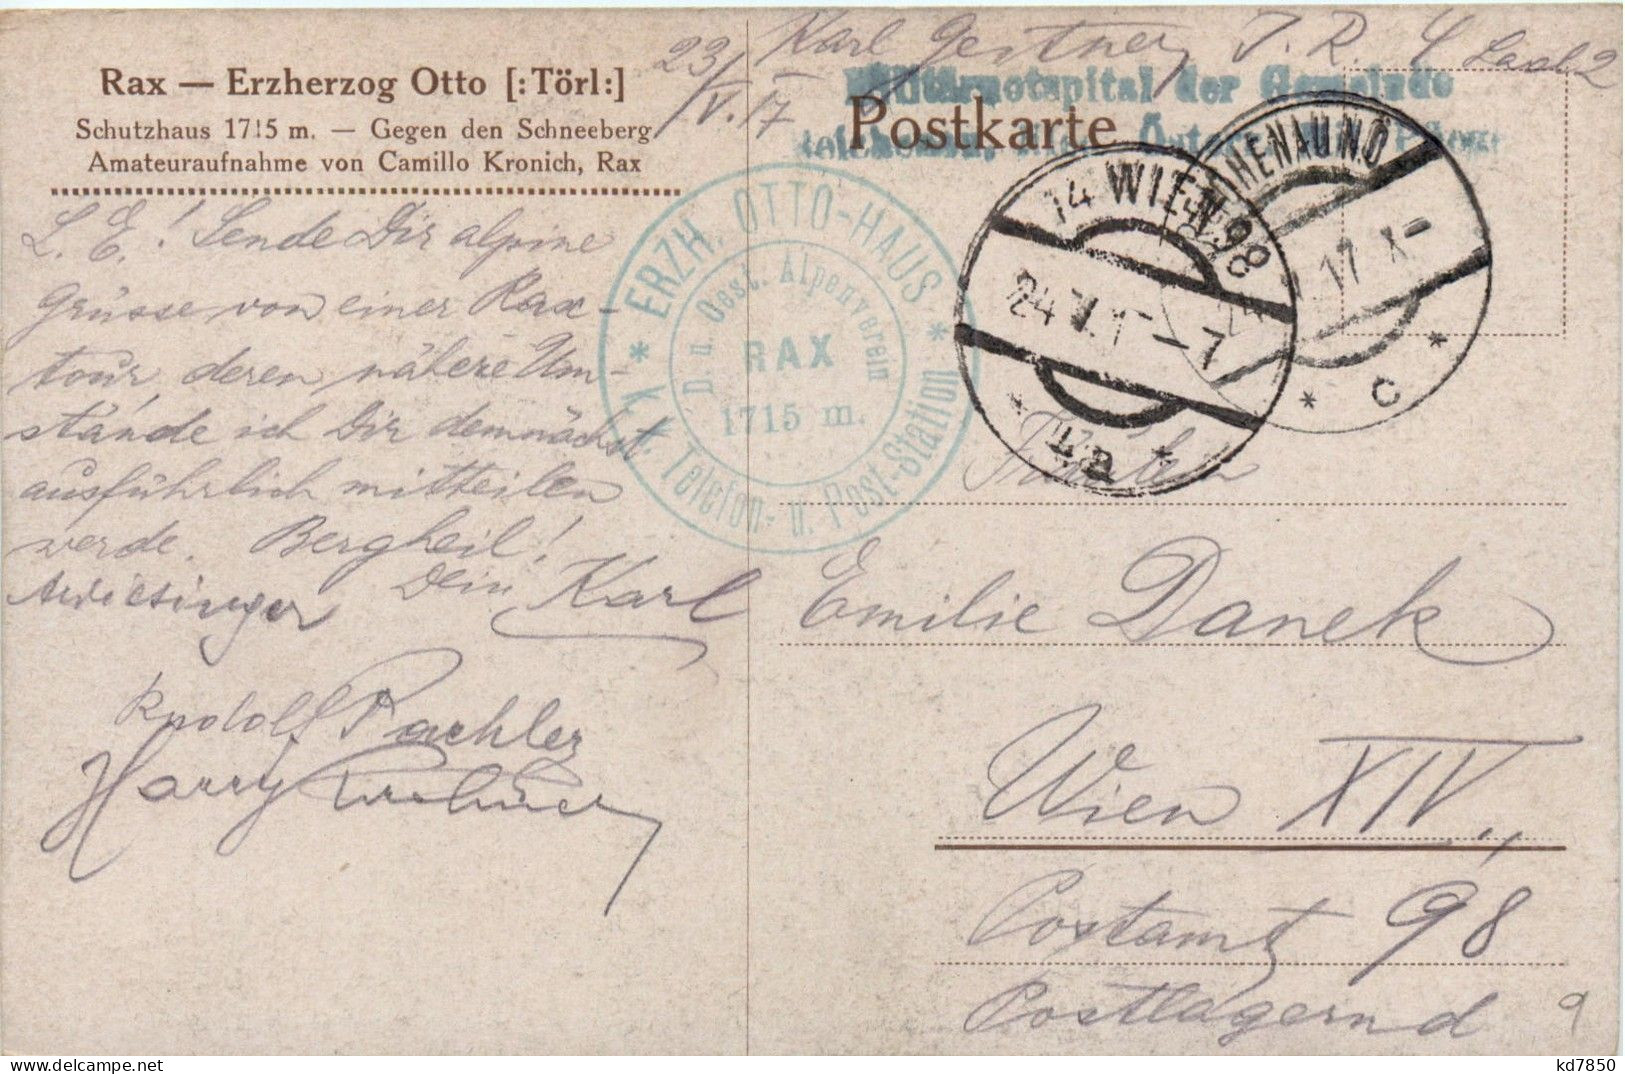 Rax — Erzherzog Otto [:Törl:]
Schutzhaus 1715 m. — Gegen den Schneeberg
Amateuraufnahme von Camillo Kronich, Rax
23/V. 17
Karl Gestner J. R. 4 Saal 2
der Gemeinde
Postkarte
L. E.! Sende Dir alpine
Grüsse von einer Rax-
tour deren nähere Um-
stände ich Dir demnächst
ausführlich mitteilen
werde. Bergheil!
Dein Karl
Rudolf Pachler
Harry
ERZH. OTTO-HAUS
* K. k. Telefon- u. Post-Station *
D. u. Oest. Alpenverein
RAX
1715 m.
14 WIEN 98
24 V 17 - 7
* 1a *
HOHENAU NÖ
17 X-
* c *
Emilie Danek
Wien XIV.,
Postamt 98
Postlagernd
9
kd7850